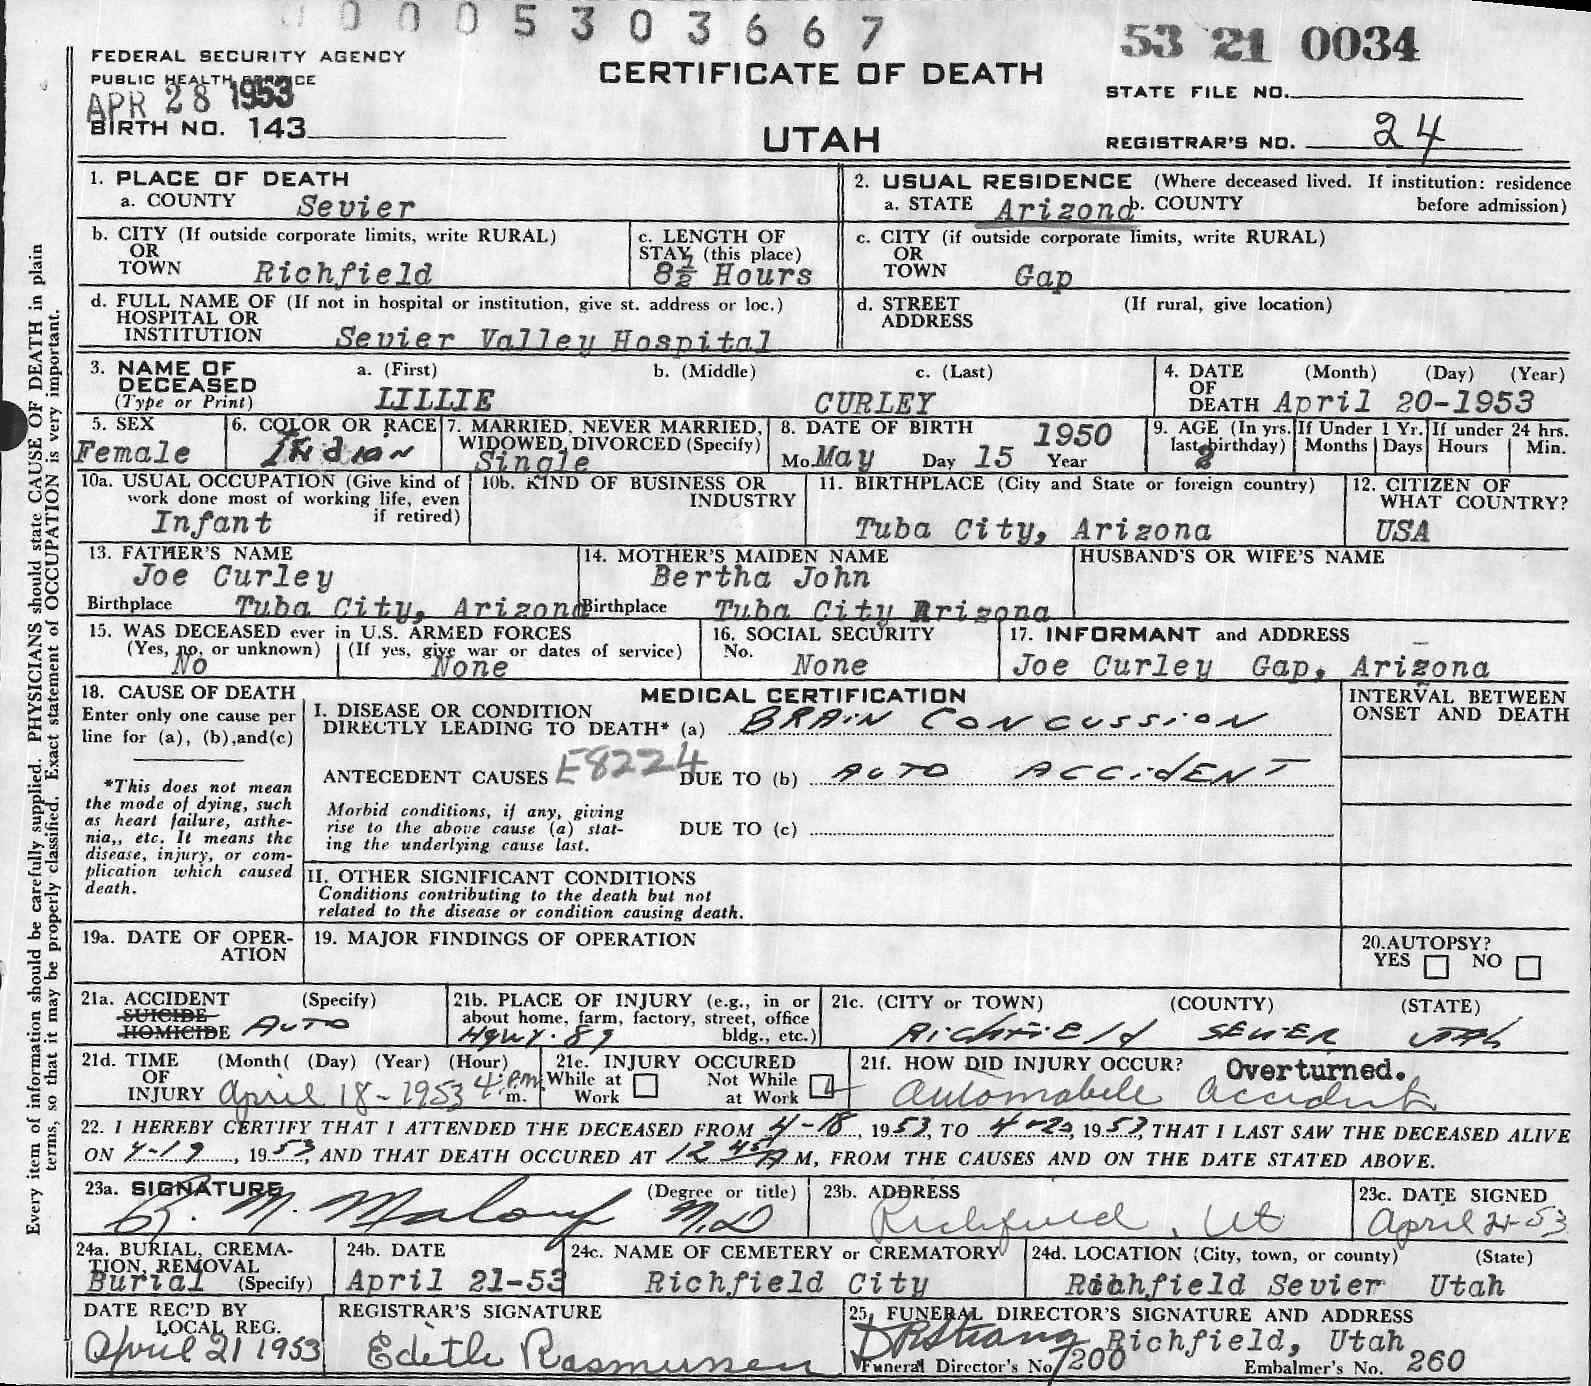 0 0 0 5 3 0 3 6 6 7
53 21 0034
FEDERAL SECURITY AGENCY
PUBLIC HEALTH SERVICE
APR 28 1953
BIRTH NO. 143
CERTIFICATE OF DEATH
UTAH
STATE FILE NO.
REGISTRAR'S NO. 24
Every item of information should be carefully supplied. PHYSICIANS should state CAUSE OF DEATH in plain
terms, so that it may be properly classified. Exact statement of OCCUPATION is very important.
1. PLACE OF DEATH
a. COUNTY Sevier
2. USUAL RESIDENCE (Where deceased lived. If institution: residence
a. STATE Arizona b. COUNTY before admission)
b. CITY (If outside corporate limits, write RURAL)
OR
TOWN Richfield
c. LENGTH OF
STAY (this place)
8½ Hours
c. CITY (if outside corporate limits, write RURAL)
OR
TOWN Gap
d. FULL NAME OF (If not in hospital or institution, give st. address or loc.)
HOSPITAL OR
INSTITUTION Sevier Valley Hospital
d. STREET (If rural, give location)
ADDRESS
3. NAME OF a. (First) b. (Middle) c. (Last)
DECEASED
(Type or Print) LILLIE CURLEY
4. DATE (Month) (Day) (Year)
OF
DEATH April 20-1953
5. SEX
Female
6. COLOR OR RACE
Indian
7. MARRIED, NEVER MARRIED,
WIDOWED, DIVORCED (Specify)
Single
8. DATE OF BIRTH 1950
Mo. May Day 15 Year
9. AGE (In yrs.
last birthday)
2
If Under 1 Yr.
Months Days
If under 24 hrs.
Hours Min.
10a. USUAL OCCUPATION (Give kind of
work done most of working life, even
if retired)
Infant
10b. KIND OF BUSINESS OR
INDUSTRY
11. BIRTHPLACE (City and State or foreign country)
Tuba City, Arizona
12. CITIZEN OF
WHAT COUNTRY?
USA
13. FATHER'S NAME
Joe Curley
Birthplace Tuba City, Arizona
14. MOTHER'S MAIDEN NAME
Bertha John
Birthplace Tuba City Arizona
HUSBAND'S OR WIFE'S NAME
15. WAS DECEASED ever in U.S. ARMED FORCES
(Yes, no, or unknown) (If yes, give war or dates of service)
No None
16. SOCIAL SECURITY
No.
None
17. INFORMANT and ADDRESS
Joe Curley Gap, Arizona
18. CAUSE OF DEATH
Enter only one cause per
line for (a), (b), and (c)
*This does not mean
the mode of dying, such
as heart failure, asthe-
nia,, etc. It means the
disease, injury, or com-
plication which caused
death.
MEDICAL CERTIFICATION
I. DISEASE OR CONDITION
DIRECTLY LEADING TO DEATH* (a) BRAIN CONCUSSION
ANTECEDENT CAUSES E8224 DUE TO (b) AUTO ACCIDENT
Morbid conditions, if any, giving
rise to the above cause (a) stat-
ing the underlying cause last.
DUE TO (c)
II. OTHER SIGNIFICANT CONDITIONS
Conditions contributing to the death but not
related to the disease or condition causing death.
INTERVAL BETWEEN
ONSET AND DEATH
19a. DATE OF OPER-
ATION
19. MAJOR FINDINGS OF OPERATION
20.AUTOPSY?
YES NO
21a. ACCIDENT (Specify)
SUICIDE
HOMICIDE AUTO
21b. PLACE OF INJURY (e.g., in or
about home, farm, factory, street, office
bldg., etc.)
Hgwy. 89
21c. (CITY or TOWN) (COUNTY) (STATE)
RICHFIELD SEVIER UTAH
21d. TIME (Month( (Day) (Year) (Hour)
OF
INJURY April 18-1953 4 P.M. m.
21e. INJURY OCCURED
While at Not While
Work at Work
21f. HOW DID INJURY OCCUR? Overturned.
Automobile accident
22. I HEREBY CERTIFY THAT I ATTENDED THE DECEASED FROM 4-18, 1953, TO 4-20, 1953, THAT I LAST SAW THE DECEASED ALIVE
ON 4-19, 1953, AND THAT DEATH OCCURED AT 12 45 A M, FROM THE CAUSES AND ON THE DATE STATED ABOVE.
23a. SIGNATURE (Degree or title)
M. Malouf M.D
23b. ADDRESS
Richfield, Ut
23c. DATE SIGNED
April 21-53
24a. BURIAL, CREMA-
TION, REMOVAL
Burial (Specify)
24b. DATE
April 21-53
24c. NAME OF CEMETERY or CREMATORY
Richfield City
24d. LOCATION (City, town, or county) (State)
Richfield Sevier Utah
DATE REC'D BY
LOCAL REG.
April 21 1953
REGISTRAR'S SIGNATURE
Edith Rasmussen
25. FUNERAL DIRECTOR'S SIGNATURE AND ADDRESS
Richfield, Utah
Funeral Director's No. 200 Embalmer's No. 260